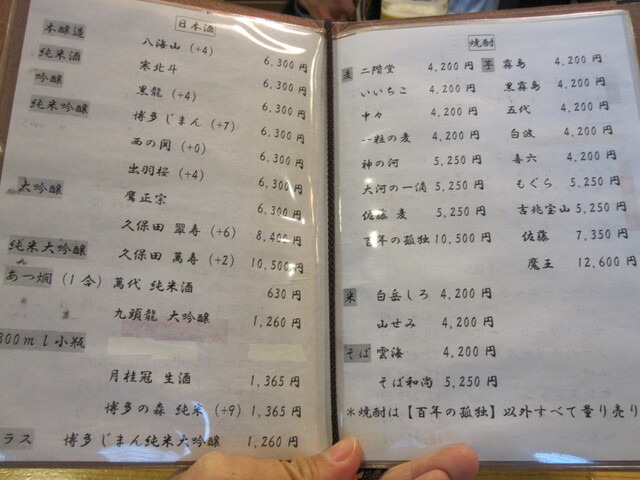 日本酒
本醸造 八海山 (+4) 6,300円
純米酒 寒北斗 6,300円
吟醸 黒龍 (+4) 6,300円
純米吟醸 博多じまん (+7) 6,300円
西の関 (+0) 6,300円
出羽桜 (+4) 6,300円
大吟醸 鷹正宗 6,300円
久保田 翠寿 (+6) 8,400円
純米大吟醸 久保田 萬寿 (+2) 10,500円
あつ燗 (1合) 萬代 純米酒 630円
九頭龍 大吟醸 1,260円
300ml小瓶
月桂冠 生酒 1,365円
博多の森 純米 (+9) 1,365円
ラス 博多じまん純米大吟醸 1,260円
焼酎
麦 二階堂 4,200円
いいちこ 4,200円
中々 4,200円
一粒の麦 4,200円
神の河 5,250円
大河の一滴 5,250円
佐藤 麦 5,250円
百年の孤独 10,500円
米 白岳しろ 4,200円
山せみ 4,200円
そば 雲海 4,200円
そば和尚 5,250円
芋 霧島 4,200円
黒霧島 4,200円
五代 4,200円
白波 4,200円
喜六 4,200円
もぐら 5,250円
吉兆宝山 5,250円
佐藤 7,350円
魔王 12,600円
*焼酎は【百年の孤独】以外すべて量り売り